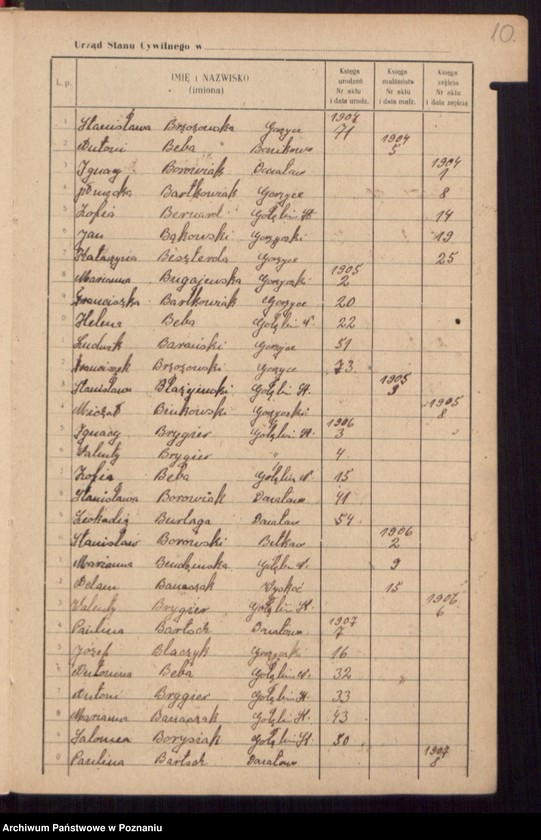 10.
Urząd Stanu Cywilnego w
L. p. IMIĘ i NAZWISKO (imiona) Księga urodzeń Nr aktu i data urodz. Księga małżeństw Nr aktu i data małż. Księga zejścia Nr aktu i data zejścia
1904
1 Stanisława Brzozowska Gorzyce 71
1904
2 Antoni Beba Bonikowo 5
1904
3 Ignacy Borowiak Darałow 1
4 Bartkowiak Gorzyce 8
5 Zofia Bernard Gołębin St. 14
6 Jan Bąkowski Gorzycki 19
7 Katarzyna Beszterda Gorzyce 25
1905
8 Marianna Bugajewska Gorzycki 2
9 Franciszka Bartkowiak Gorzyce 20
0 Helena Beba Gołębin N. 22
1 Ludwik Barański Gorzyce 51
2 Franciszek Brzozowski Gorzyce 73
1905
3 Stanisława Błażejewski Gołębin St. 3
1905
4 Michał Binkowski Gorzycki 8
1906
5 Ignacy Brygier Gołębin St. 3
6 Walenty Brygier " 4
7 Zofia Beba Gołębin N. 15
8 Stanisława Borowiak Darałow 41
9 Leokadia Burlaga Darałow 54
1906
0 Stanisław Borowski 2
1 Marianna Gołębin N. 9
2 Adam Banaszak Wyskoć 15
1906
3 Walenty Brygier Gołębin St. 6
1907
4 Paulina Bartsch Darałow 7
5 Józef Blaczyk Gorzycki 16
6 Antonina Beba Gołębin N. 32
7 Antoni Brygier Gołębin St. 33
8 Marianna Banaszak Gołębin St. 43
9 Salomea Borysiak Gołębin St. 50
1907
0 Paulina Bartsch Darałow 8
Archiwum Państwowe w Poznaniu